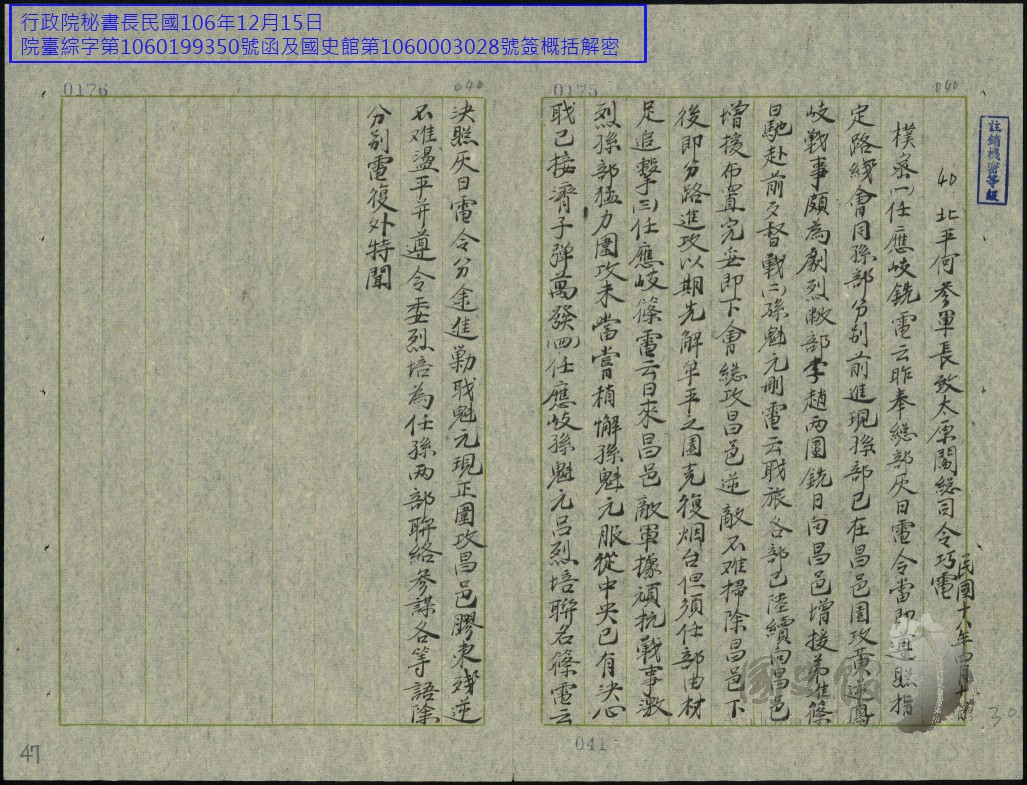 行政院秘書長民國106年12月15日
院臺綜字第1060199350號函及國史館第1060003028號簽概括解密
0175
040
註銷機密等級
40 北平何參軍長致太原閻總司令巧電
民國十八年四月十八
樸察(一)任應岐銑電云昨奉總部灰日電令當即遵照指
定路綫會同孫部分別前進現孫部已在昌邑圍攻黃逆鳳
岐戰事頗為劇烈敝部李趙兩團銑日向昌邑增援弟准篠
日馳赴前方督戰(二)孫魁元刪電云職旅各部已陸續向昌邑
增援佈置完妥即下會總攻昌邑逆敵不难掃除昌邑下
後即分路進攻以期先解牟平之圍克復烟台但須任部由材
足追擊(三)任應岐篠電云日來昌邑敵軍據頑抗戰事激
烈孫部猛力圍攻未嘗稍懈孫魁元服從中央已有決心
職已接濟子彈萬發(四)任應岐孫魁元呂烈培聯名篠電云
0176
040
決照灰日電令分途進勦職魁元現正圍攻昌邑膠東殘逆
不难盪平并遵令委烈培為任孫両部聯絡參謀各等語除
分別電復外特聞
041
47
30